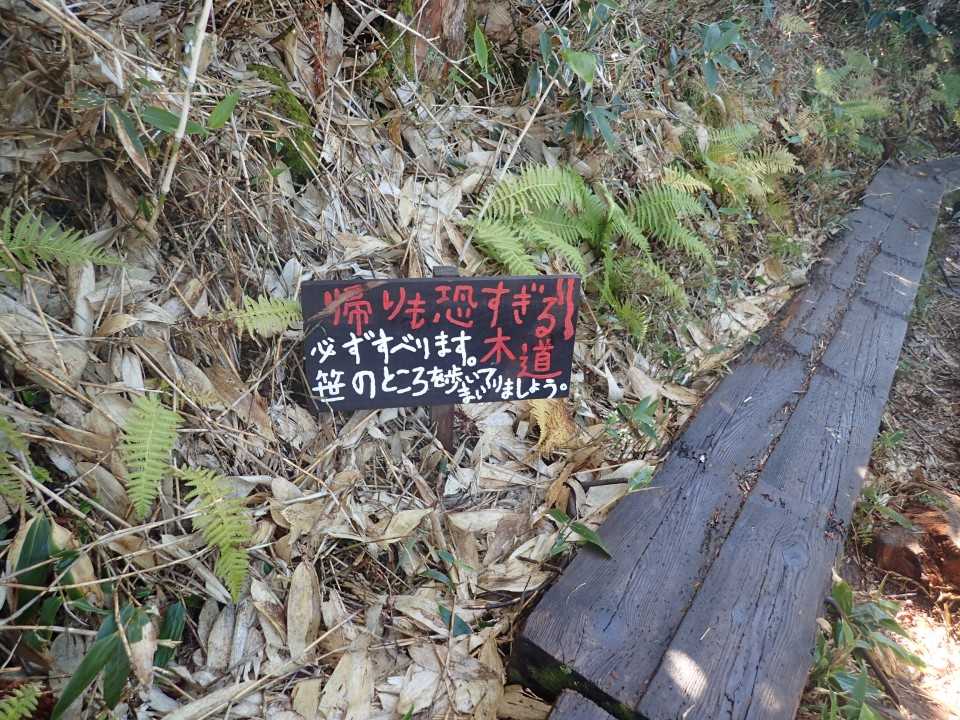 帰りも恐すぎる!!
必ずすべります。木道
笹のところを歩いてまいりましょう。